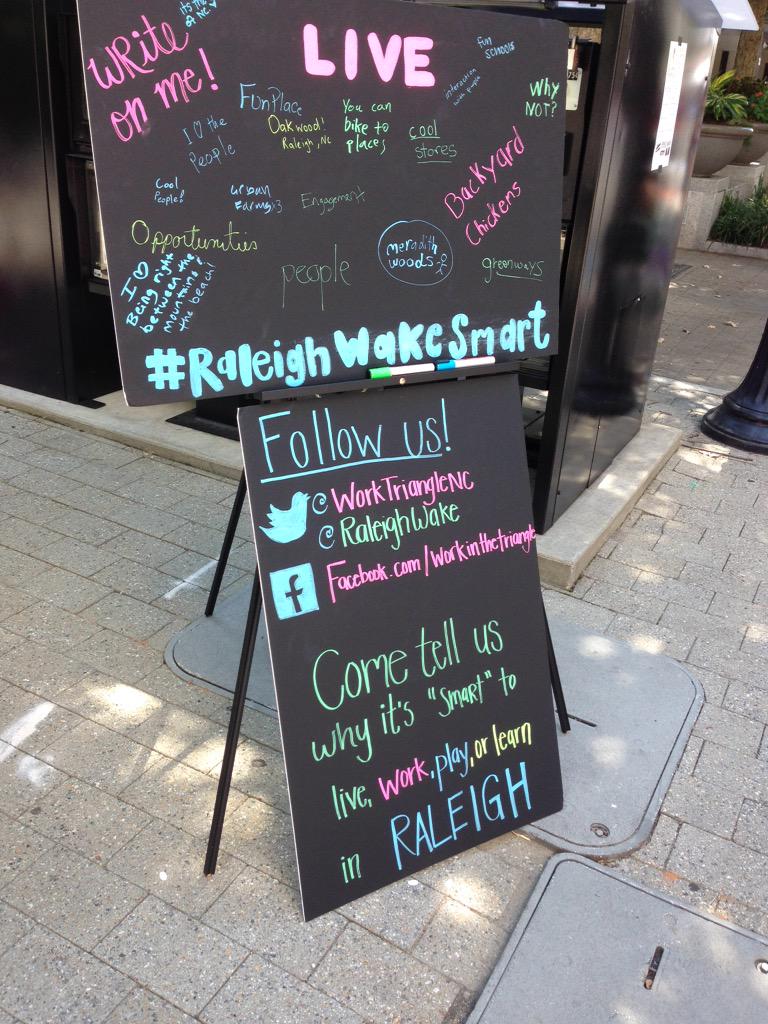 It's the
of NC
Write
on me!
LIVE
Fun
Schools
interaction
with people
Why
NOT?
Fun Place
I ♡ the
People
Oakwood!
Raleigh, NC
You can
bike to
places
cool
stores
Backyard
Chickens
Cool
People!
urban
Farms
Engagement
Opportunities
people
meredith
woods
greenways
I ♡
Being right
between the
mountains &
the beach!
#RaleighWakeSmart
Follow us!
@WorkTriangleNC
@RaleighWake
f
Facebook.com/workinthetriangle
Come tell us
why it's "smart" to
live, work, play, or learn
in RALEIGH